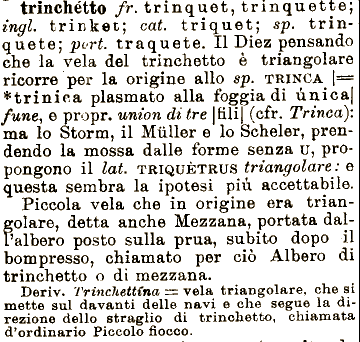 trinchétto fr. trinquet, trinquette;
ingl. trinket; cat. triquet; sp. trin-
quete; port. traquete. Il Diez pensando
che la vela del trinchetto è triangolare
ricorre per la origine allo sp. TRINCA |=
*trinica plasmato alla foggia di única|
fune, e propr. union di tre |fili| (cfr. Trinca):
ma lo Storm, il Müller e lo Scheler, pren-
dendo la mossa dalle forme senza U, pro-
pongono il lat. TRIQUÈTRUS triangolare: e
questa sembra la ipotesi più accettabile.
Piccola vela che in origine era trian-
golare, detta anche Mezzana, portata dal-
l'albero posto sulla prua, subito dopo il
bompresso, chiamato per ciò Albero di
trinchetto o di mezzana.
Deriv. Trinchettína = vela triangolare, che si
mette sul davanti delle navi e che segue la di-
rezione dello straglio di trinchetto, chiamata
d'ordinario Piccolo fiocco.